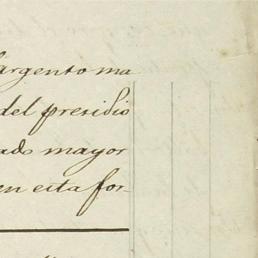 argento ma
del presidio
ado mayor
en esta for-